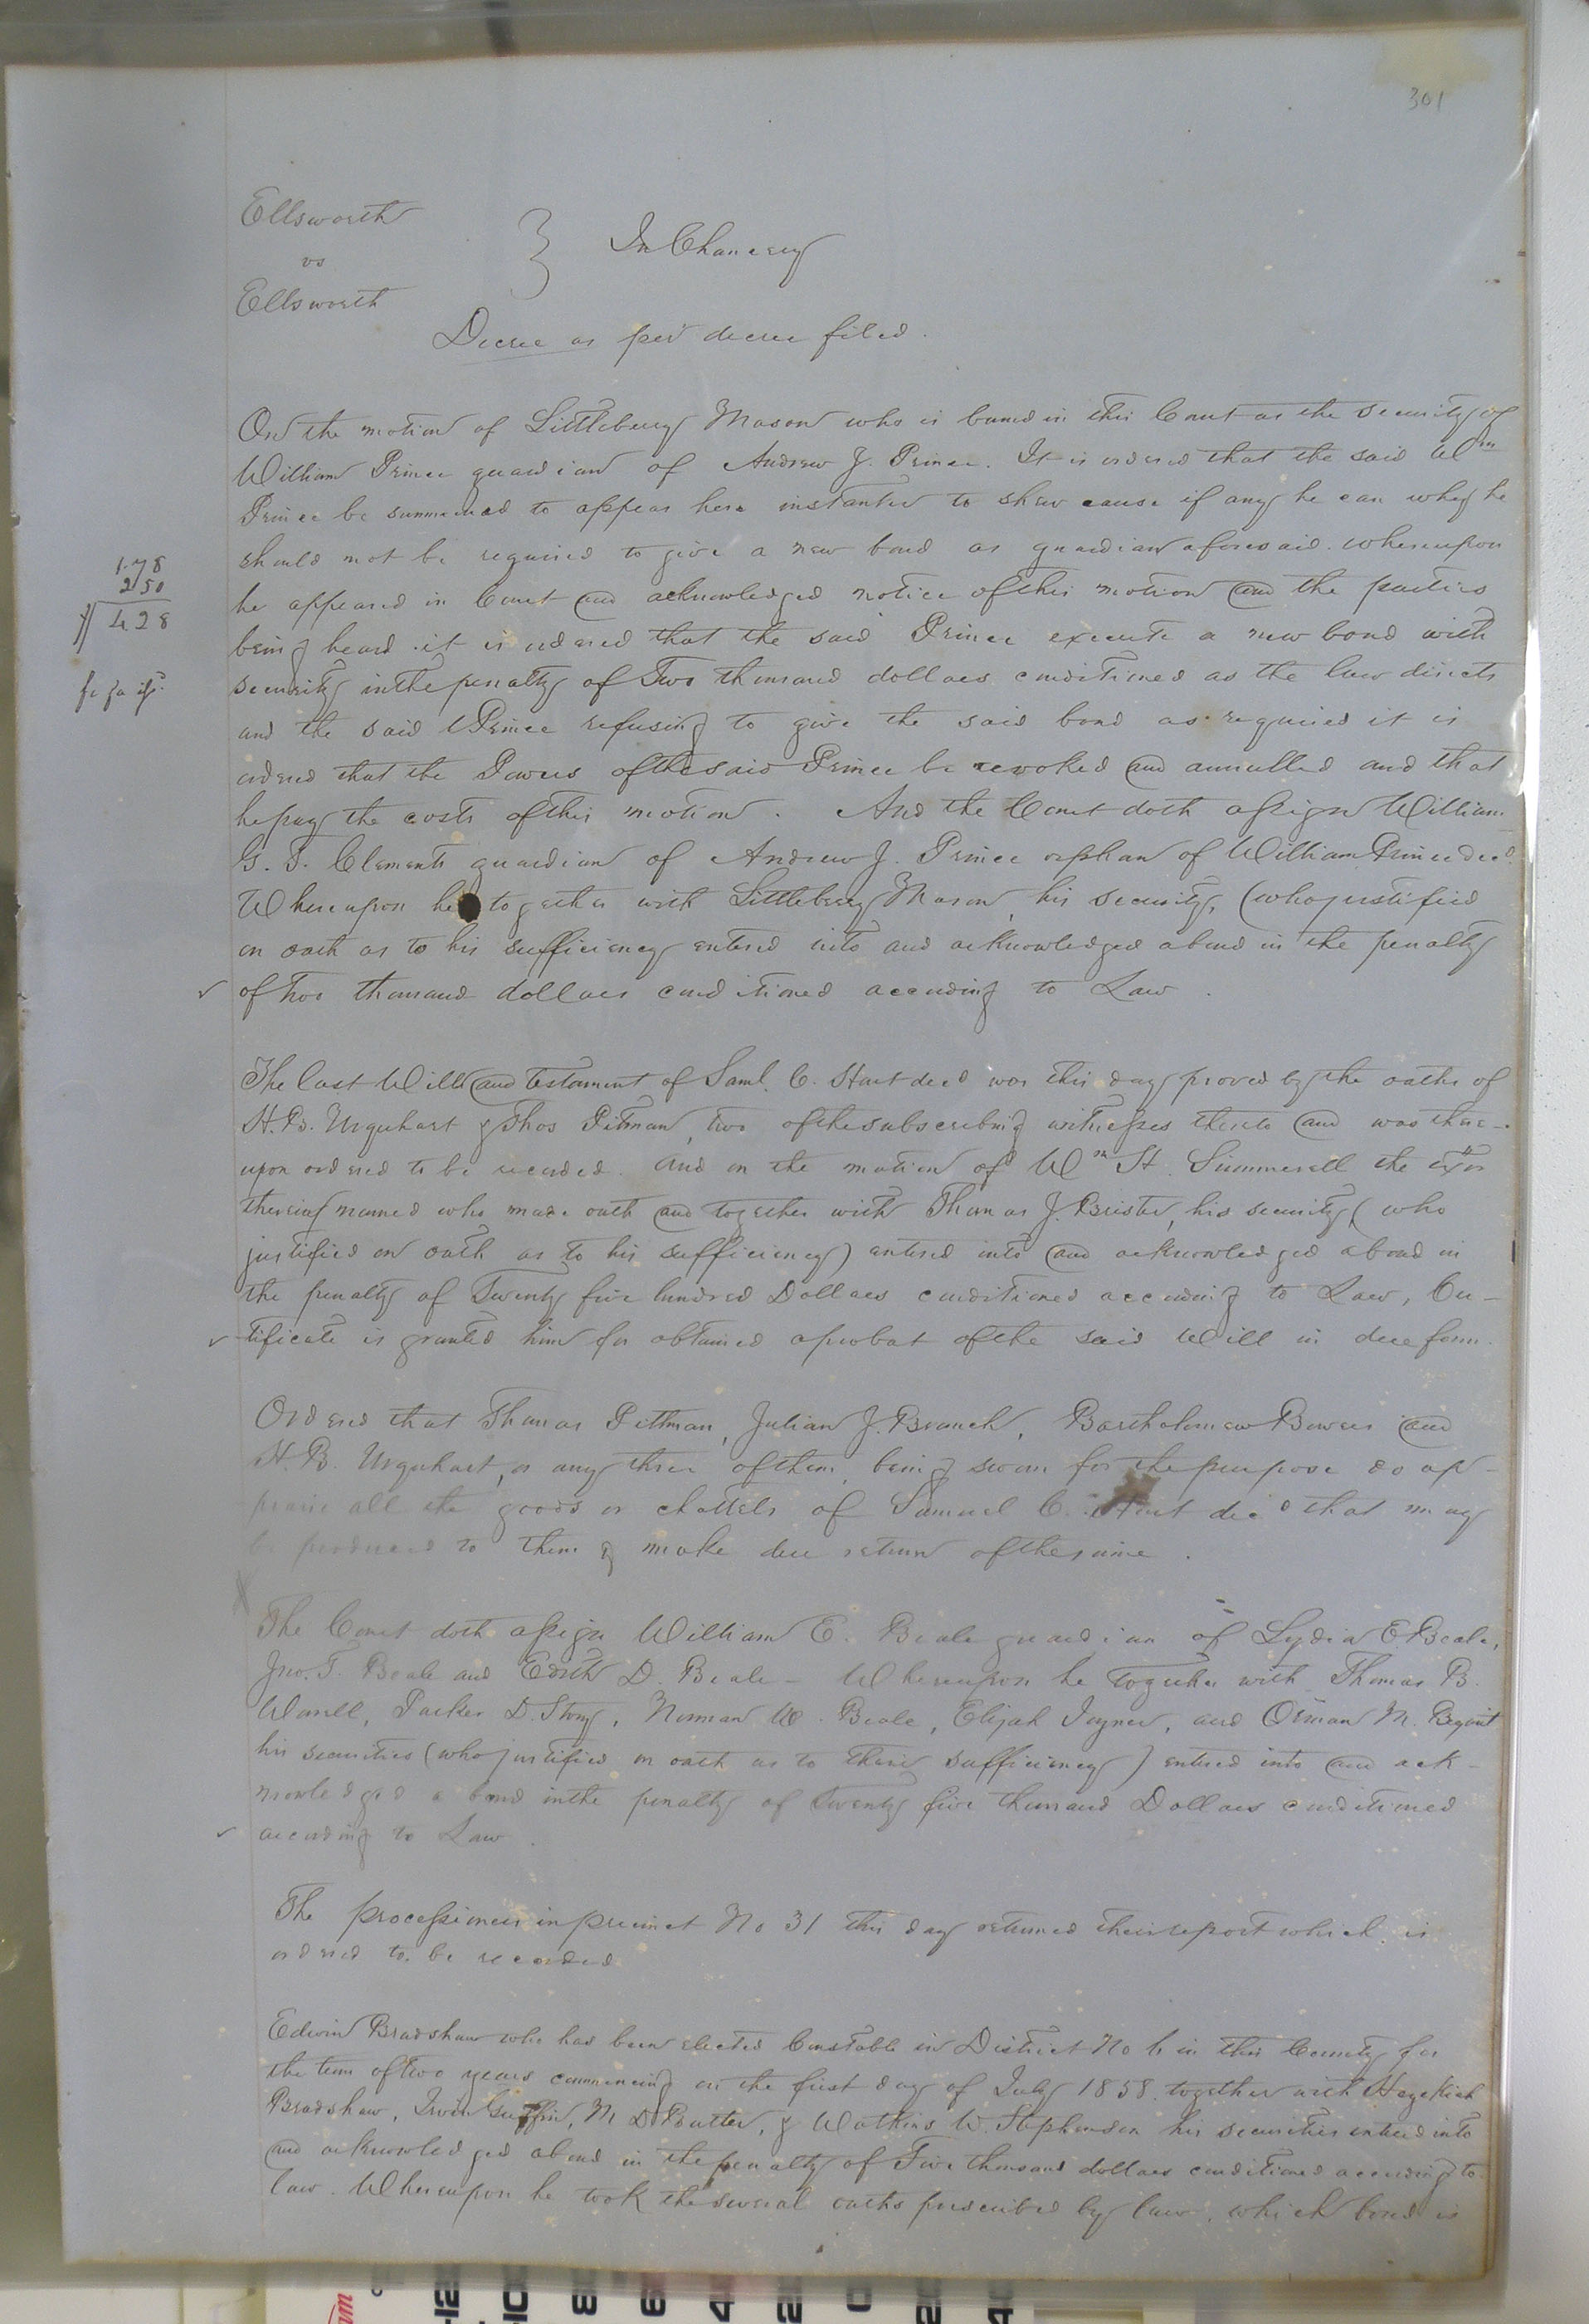 301
Ellsworth
vs
Ellsworth
} In Chancery
Decree as per decree filed.
On the motion of Littleberry Mason who is bound in this Court as the security of
William Prince guardian of Andrew J. Prince. It is ordered that the said Wm
Prince be summoned to appear here instanter to shew cause if any he can why he
should not be required to give a new bond as guardian aforesaid. whereupon
he appeared in Court and acknowledged notice of this motion and the parties
being heard it is ordered that the said Prince execute a new bond with
security in the penalty of Two thousand dollars conditioned as the law directs
and the said Prince refusing to give the said bond as required it is
ordered that the Powers of the said Prince be revoked and annulled and that
he pay the costs of this motion. And the Court doth assign William
G. P. Clements guardian of Andrew J. Prince orphan of William Prince decd.
Whereupon he together with Littleberry Mason, his security, (who justified
on oath as to his sufficiency entered into and acknowledged a bond in the penalty
✓ of two thousand dollars conditioned according to Law.
1.78
2 50
4 28
fi fa ifs.
The last Will and testament of Saml. C. Hart decd was this day proved by the oaths of
H. B. Urquhart & Thos Pitman, two of the subscribing witnesses thereto and was there-
upon ordered to be recorded. And on the motion of Wm H. Summerell the exor
therein named who made oath and together with Thomas J. Brister, his security, (who
justified on oath as to his sufficiency) entered into and acknowledged a bond in
the penalty of Twenty five hundred Dollars conditioned according to Law, Cer-
✓ tificate is granted him for obtained a probat of the said Will in due form.
Ordered that Thomas Pittman, Julian J. Branch, Bartholomew Bowers and
H. B. Urquhart, or any three of them, being sworn for the purpose do ap-
praise all the goods or chattels of Samuel C. Hart decd that may
be produced to them & make due return of the same.
The Court doth assign William E. Beale guardian of Lydia E. Beale,
Jno. T. Beale and Edith D. Beale - Whereupon he together with Thomas B.
Worrell, Parker D. Story, Norman W. Beale, Elijah Joyner, and Orman M.
his securities (who justified on oath as to their sufficiency) entered into and ack-
nowledged a bond in the penalty of Twenty five thousand Dollars conditioned
✓ according to Law.
The processioners in precinct No 31 this day returned their report which is
ordered to be recorded
Edwin Bradshaw who has been elected Constable in District No 6 in this County for
the term of two years commencing on the first day of July 1858 together with Hezekiah
Bradshaw, Irvin Griffin, M D Pretlow, & Watkins W. Stephenson his securities entered into
and acknowledged a bond in the penalty of Five thousand dollars conditioned according to
law. Whereupon he took the several oaths prescribed by law. which bond is